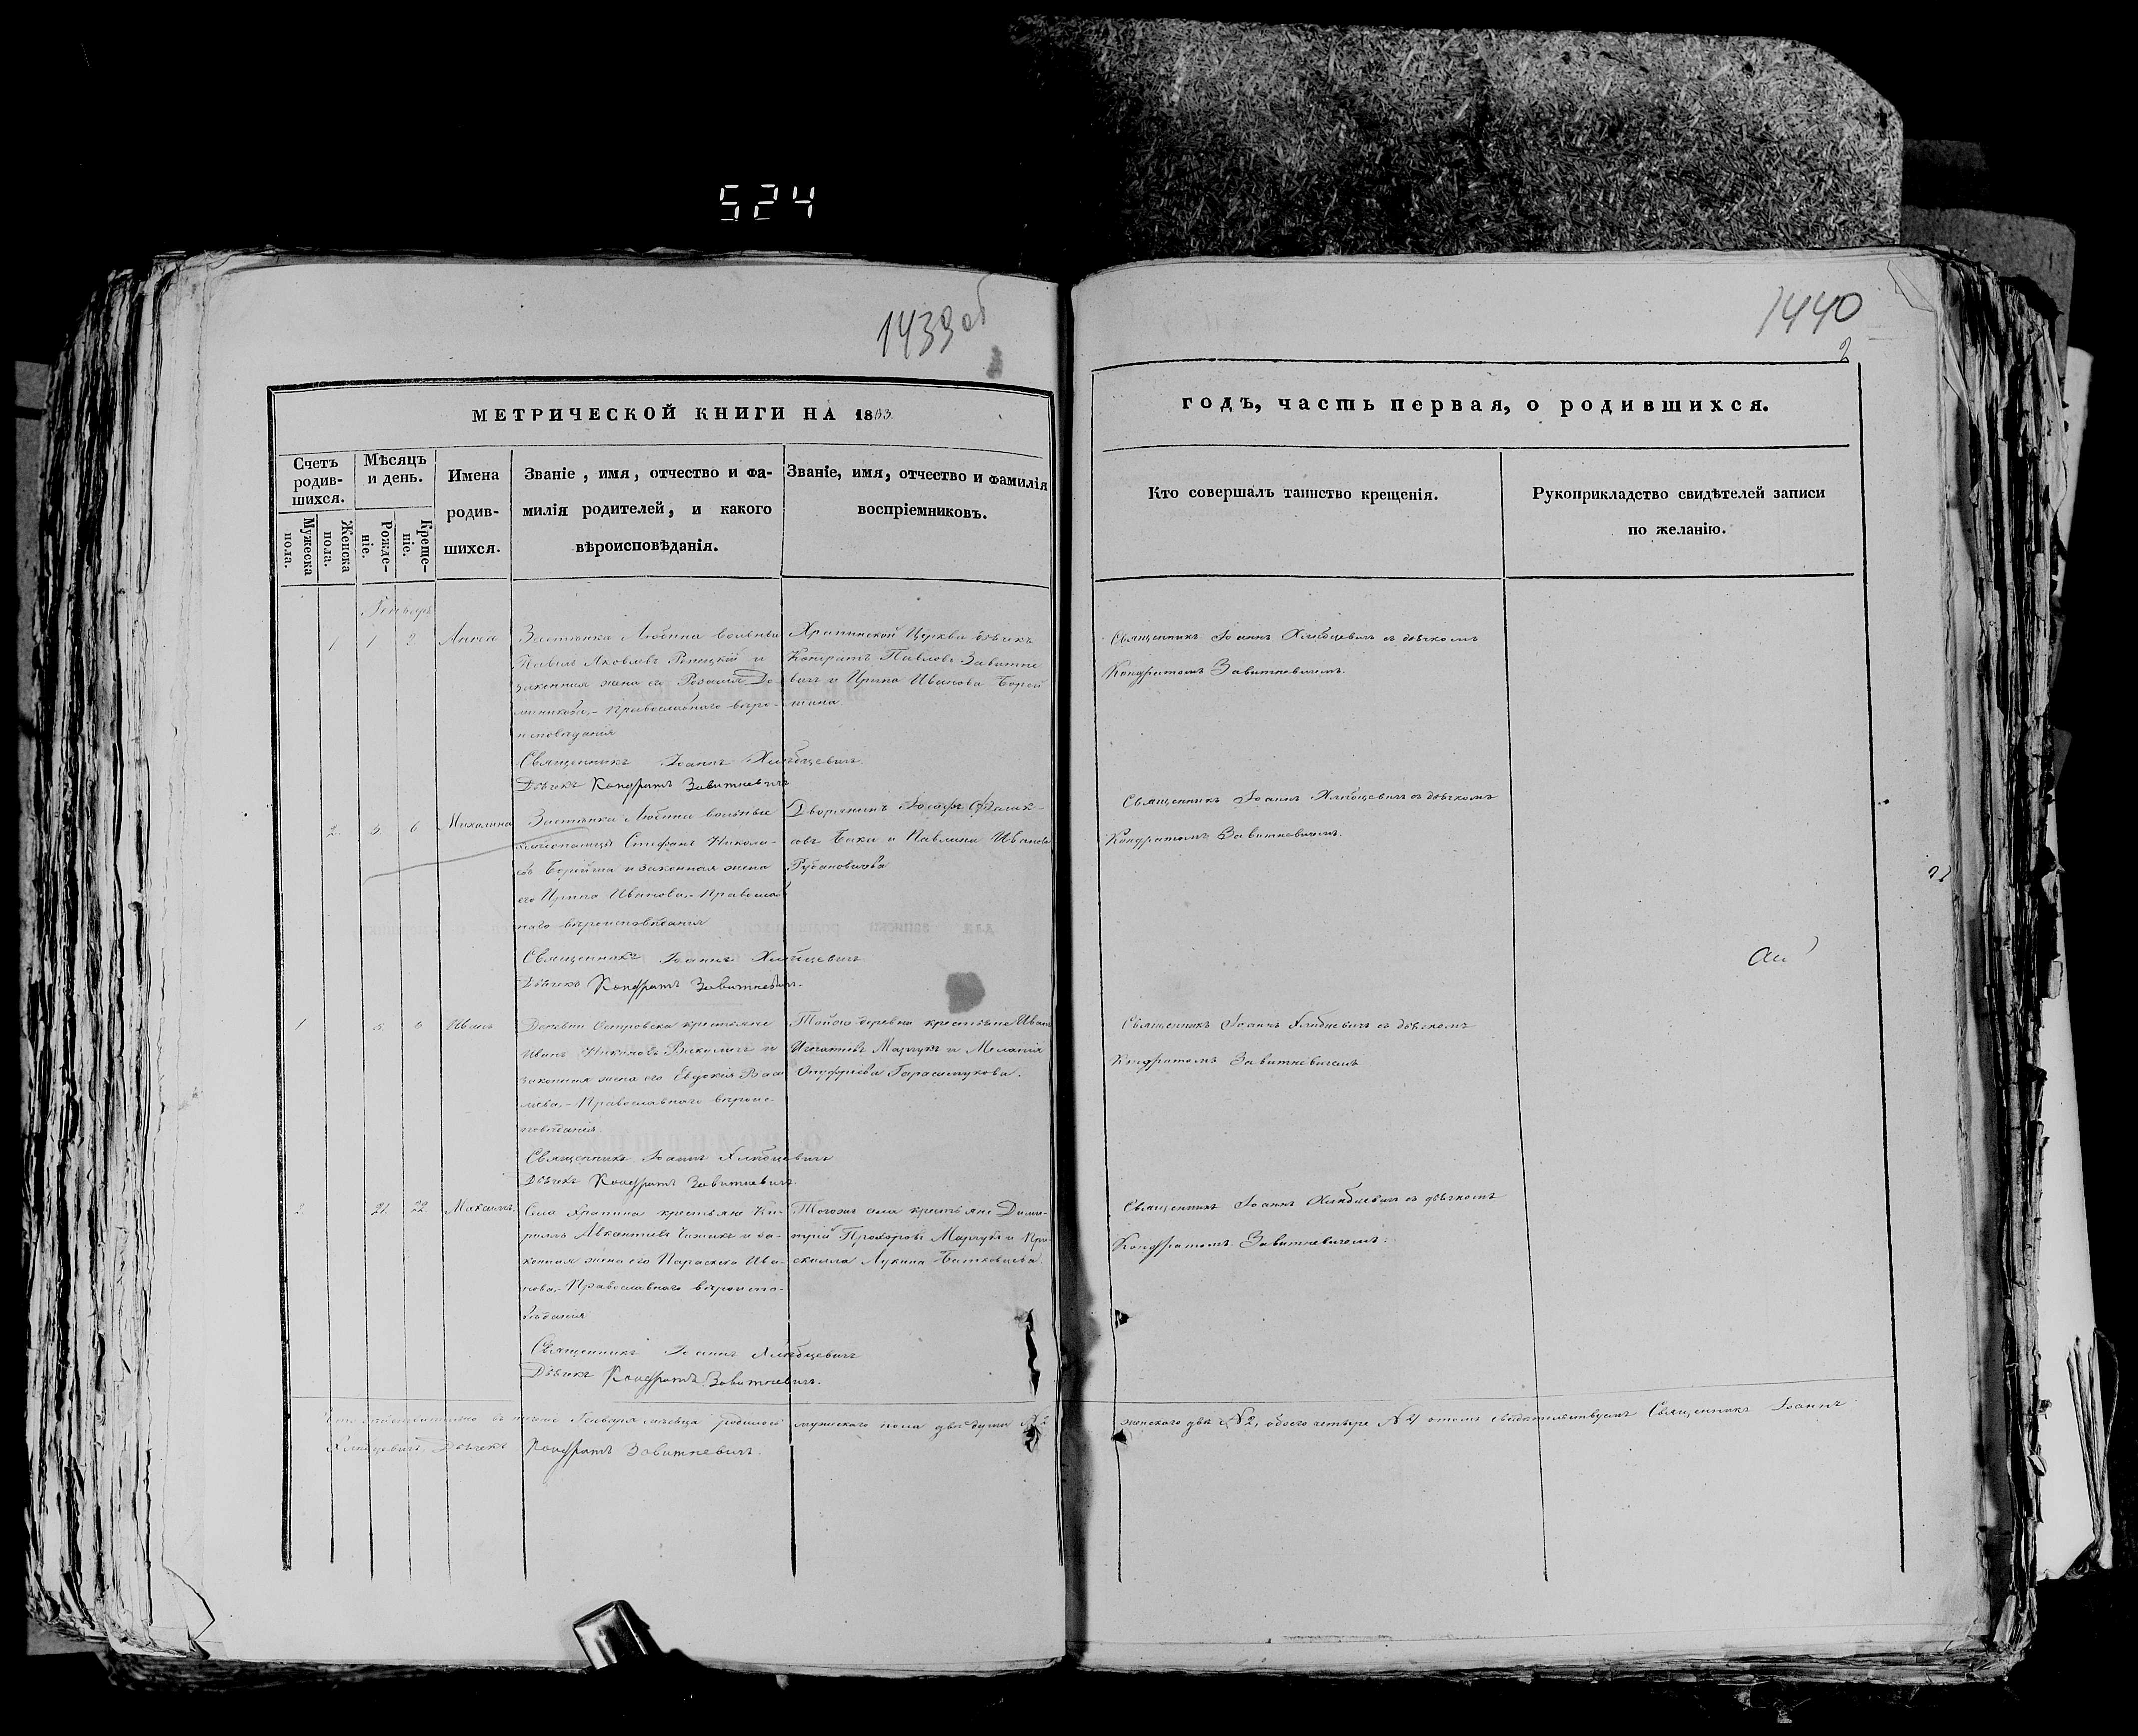 524
1439 об
1440
2
МЕТРИЧЕСКОЙ КНИГИ НА 1863
годъ, часть первая, о родившихся.
Счетъ родив-шихся.
Мужеска пола.
Женска пола.
Мѣсяцъ и день.
Рожде-ніе.
Креще-ніе.
Имена родив-шихся.
Званіе, имя, отчество и фа-
милія родителей, и какого
вѣроисповѣданія.
Званіе, имя, отчество и фамилія
воспріемниковъ.
Кто совершалъ таинство крещенія.
Рукоприкладство свидѣтелей записи
по желанію.
Генварь
1 1 2 Анна
Застѣнка Любина вольные
Павелъ Яковлевъ и
законная жена его Розалія До-
миникова,- Православнаго вѣро-
исповѣданія
Священникъ Іоаннъ Хлѣбцевичъ.
Дьячекъ Кондратъ Завитневичъ
Храпинской Церкви дьячекъ
Кондратъ Павловъ Завитне
вичъ и Ирина Иванова Борей
шина.
Священникъ Іоаннъ Хлѣбцевичъ съ дьячкомъ
Кондратомъ Завитневичемъ.
2. 5. 6 Михалина
Застѣнка Любина вольные
Стефанъ Никола-
евъ Борейша и законная жена
его Ирина Иванова,- Православ
наго вѣроисповѣданія
Священникъ Іоаннъ Хлѣбцевичъ
Дьячекъ Кондратъ Завитневичъ.
Дворянинъ Іосифъ
Бака и Павлина Иванова
Священникъ Іоаннъ Хлѣбцевичъ съ дьячкомъ
Кондратомъ Завитневичемъ.
1 5. 6 Иванъ
Деревни Островска крестьяне
Иванъ и
законная жена его Евдокія Васи
лева,- Православнаго вѣроис-
повѣданія
Священникъ Іоаннъ Хлѣбцевичъ
Дьячекъ Кондратъ Завитневичъ.
Тойже деревни крестьяне Иванъ
Игнатіевъ Марчукъ и Меланія
Онуфріева Герасимукова.
Священникъ Іоаннъ Хлѣбцевичъ съ дьячкомъ
Кондратомъ Завитневичемъ
2. 21. 22 Максимъ.
Села Храпина крестьяне Ки-
риллъ Чижикъ и за-
конная жена его Параскева Ива-
нова,- Православнаго вѣроиспо-
вѣданія
Священникъ Іоаннъ Хлѣбцевичъ
Дьячекъ Кондратъ Завитневичъ.
Тогожъ села крестьяне Дими-
трій Прохоровъ Марчукъ и При
скилла Лукина
Священникъ Іоаннъ Хлѣбцевичъ съ дьячкомъ
Кондратомъ Завитневичемъ.
Что дѣйствительно въ Генварѣ мѣсяцѣ родилось мужескаго пола двѣ души №2
женскаго двѣ №2, обоего четыре №4 о томъ свидѣтельствуемъ Священникъ Іоаннъ
Хлѣбцевичъ Дьячекъ Кондратъ Завитневичъ.